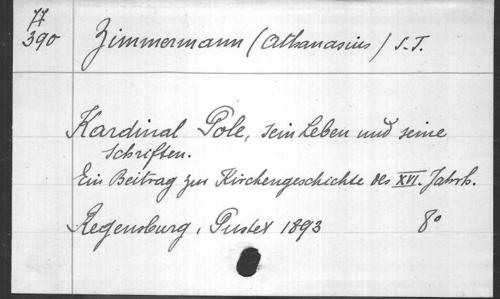 77
390 Zimmermann (Athanasius) S.T.
Kardinal Pole, sein Leben und seine
Schriften.
Ein Beitrag zur Kirchengeschichte des XVI. Jahrh.
Regensburg, Pustet 1893 8°